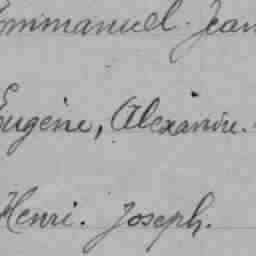 Emmanuel. Jean
Eugène, Alexandre.
Henri. Joseph.